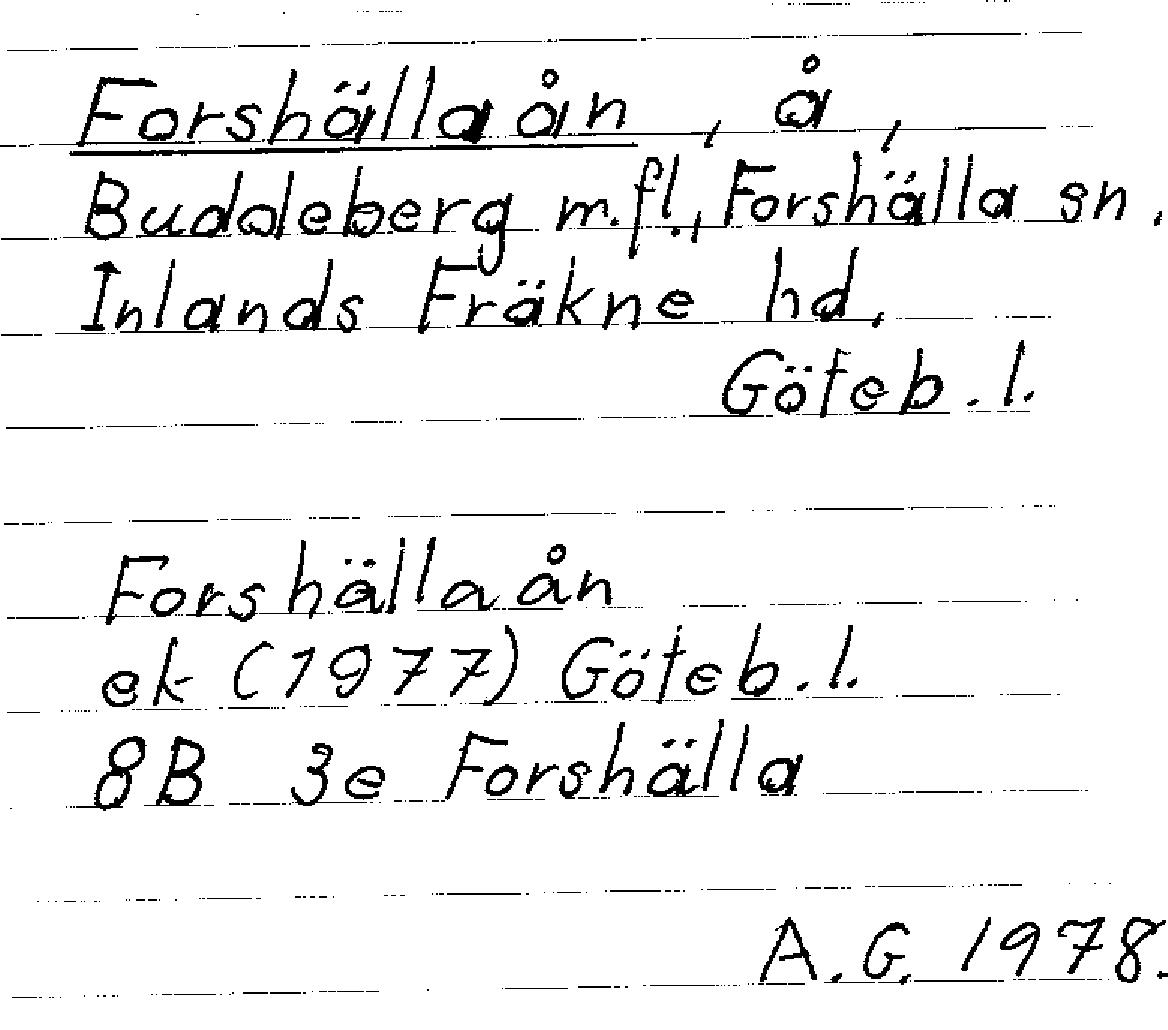 Forshällaån, å,
Buddeberg m.fl., Forshälla sn.
Inlands Fräkne hd,
Göteb. l.
Forshällaån
ek (1977) Göteb. l.
8B 3e Forshälla
A. G. 1978.